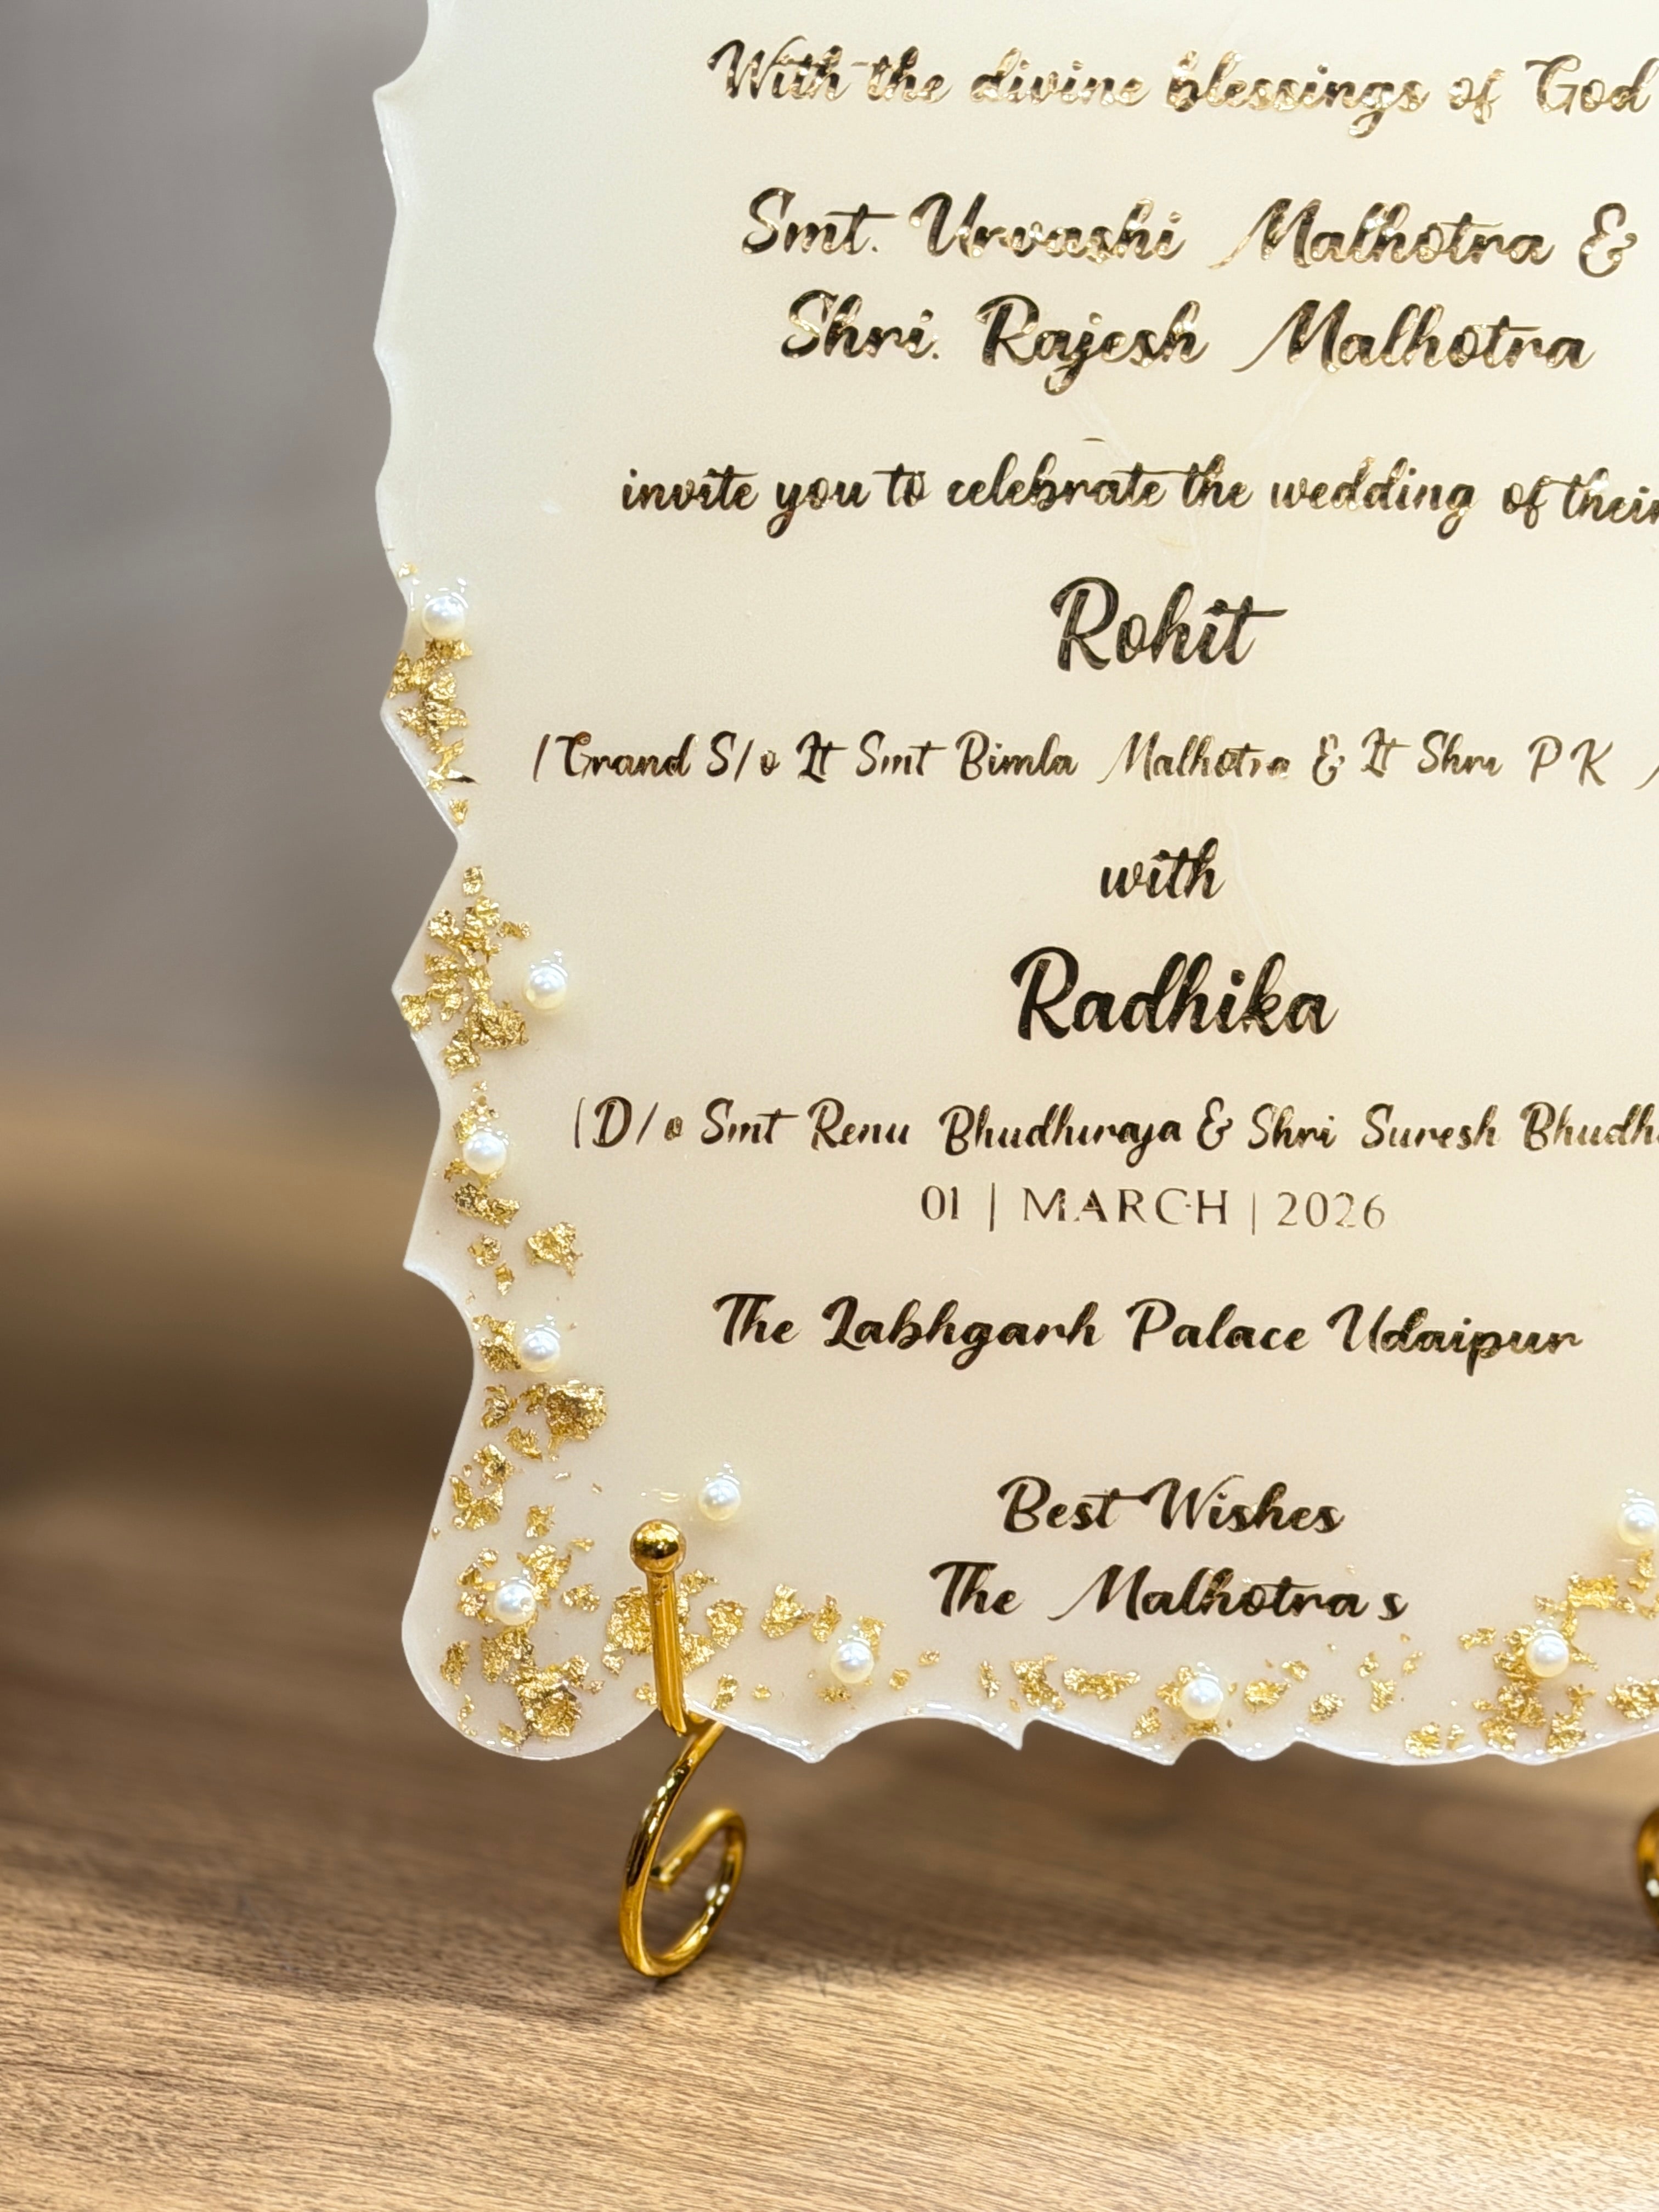 With the divine blessings of God
Smt. Urvashi Malhotra &
Shri. Rajesh Malhotra
invite you to celebrate the wedding of their
Rohit
(Grand S/o Lt Smt Bimla Malhotra & Lt Shri P K
with
Radhika
(D/o Smt Renu Bhudhiraja & Shri Suresh
01 | MARCH | 2026
The Labhgarh Palace Udaipur
Best Wishes
The Malhotra s